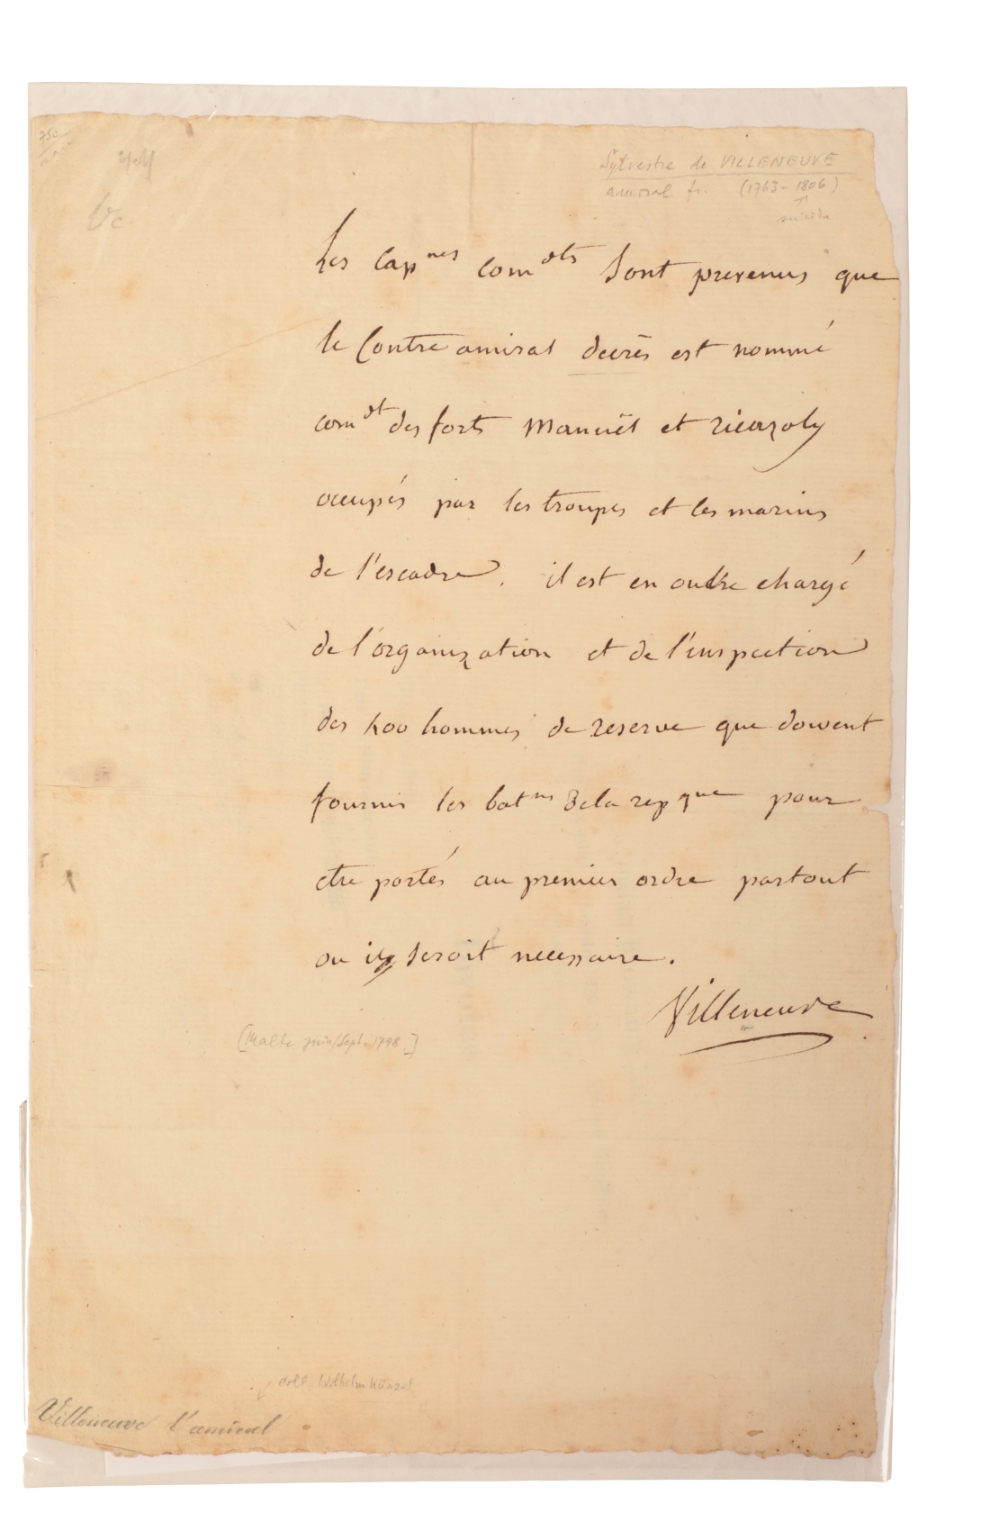 Sylvestre de VILLENEUVE
amiral fr. (1763-1806)
Les cap^nes com^dts sont prevenus que
le Contre amiral decrès est nommé
com^dt des forts Manuël et ricazoly
occupés par les troupes et les marins
de l'escadre. il est en outre chargé
de l'organization et de l'inspection
des 400 hommes de reserve que doivent
fournir les bat^ns de la rep^que pour
etre portés au premier ordre partout
ou il seroit necessaire.
Villeneuve
[Malte juin/Sept. 1798]
Villeneuve l'amiral